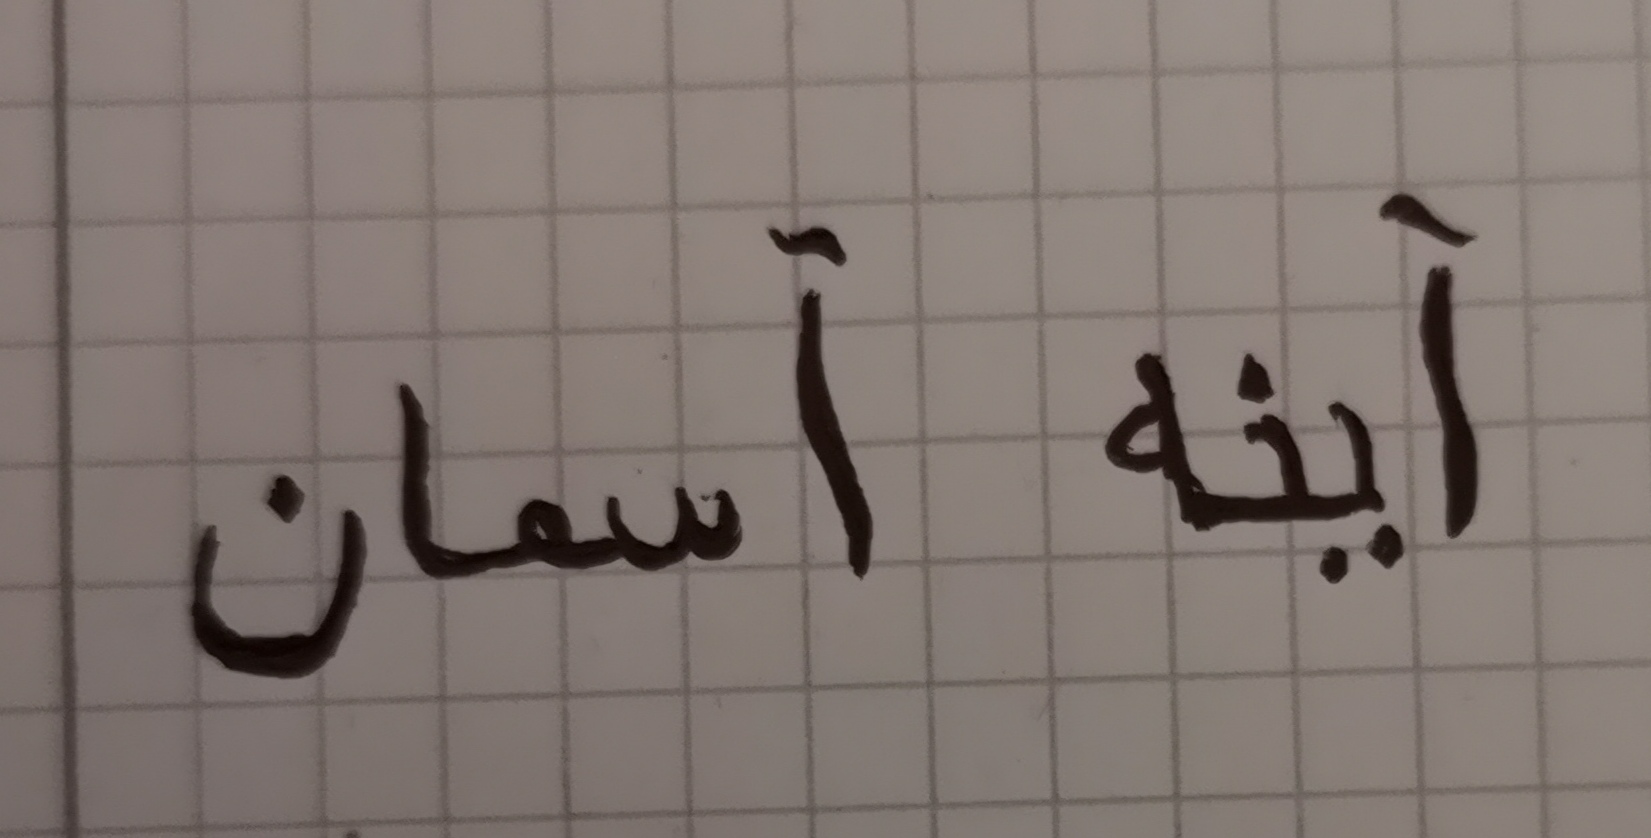 آینه آسمان